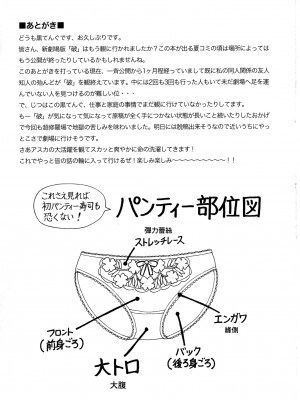 ■あとがき■
どうも黒てんぐです、お久しぶりです。
皆さん、新劇場版「破」はもう観に行かれましたか？この本が出る夏コミの頃は場所によっては
もう公開が終ったりしているかもしれませんね。
このあとがきを打っている現在、一般公開から1ヶ月程経っていまして既に私の同人関係の友人
知人の殆んどが「破」を観終えています。中には2回も3回も行った人もいて未だ劇場へ足を運
んでいない人を見つけるのが難しい位に……
で、じつはこの黒てんぐ、仕事と家庭の事情でまだ観に行けていなかったりしてます。
もー「破」が気になって気になって原稿が全く手につかない状態が長いこと続いたりしたおかげ
で今回も超修羅場で地獄の苦しみを味わいました。明日には脱稿出来そうなので近いうちにやっ
とこさで劇場に行けそうです。
さあアスカの大活躍を観てスカッと爽やかに命の洗濯してきます！
これでやっと皆の話の輪に入って行けるぜ！楽しみ楽しみ〜〜〜〜〜〜〜〜〜〜！！
これさえ見れば
初パンティー寿司も
恐くない！
パンティー部位図
弾力蕾絲
ストレッチレース
エンガワ
縁側
フロント
(前身ごろ)
バック
(後ろ身ごろ)
大トロ
大腹